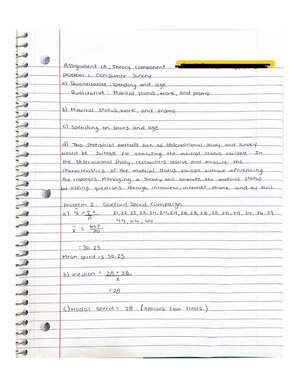 Assignment 1A, Theory Component
problem 1. Consumer Survey
a) Quantitative: spending and age
Qualitative: Marital status, work, and promo
b) Marital status, work, and promo
c) Spending on shoes and age
d) Two statistical methods such as observational study and survey
would be suitable for analyzing the marital status variable. In
the observational study, researchers observe and measure the
characteristics of the marital status variable without influencing
the responses. Managing a survey will analyze the marital status
by asking questions through interview, internet, phone, and by mail
Problem 2. Oxford Speed Campaign
a) x̄ = Σx / n
44, 44, 44
x̄ = 605 / 20
= 30.25
Mean speed = 30.25
b) median = 28 + 28 / 2
= 28
c) Modal speed = 28 (appears four times.)